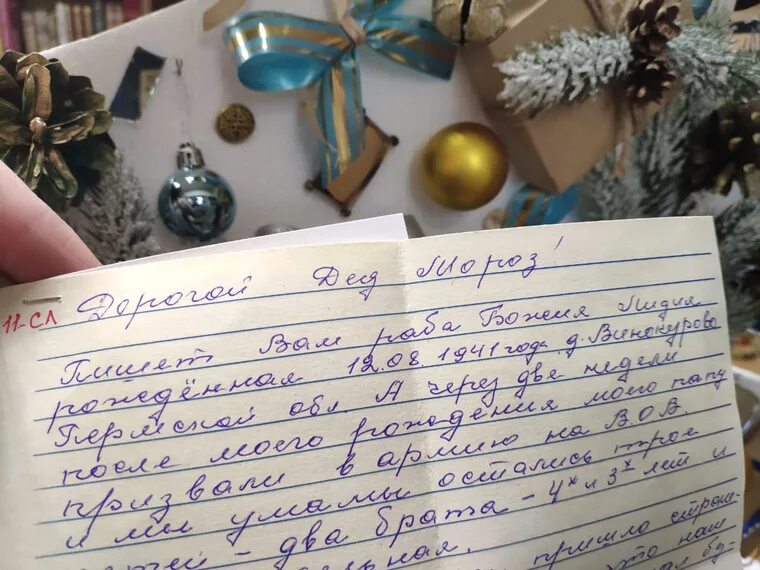 Дорогой Дед Мороз!
11-СЛ
Пишет Вам раба Божия Лидия
рождённая 12.08.1941 года д. Винокурово
Пермской обл. А через две недели
после моего рождения моего папу
призвали в армию на В.О.В.
и мы у мамы остались трое
детей - два брата - 4х и 3х лет и
пришло страш-
что наш